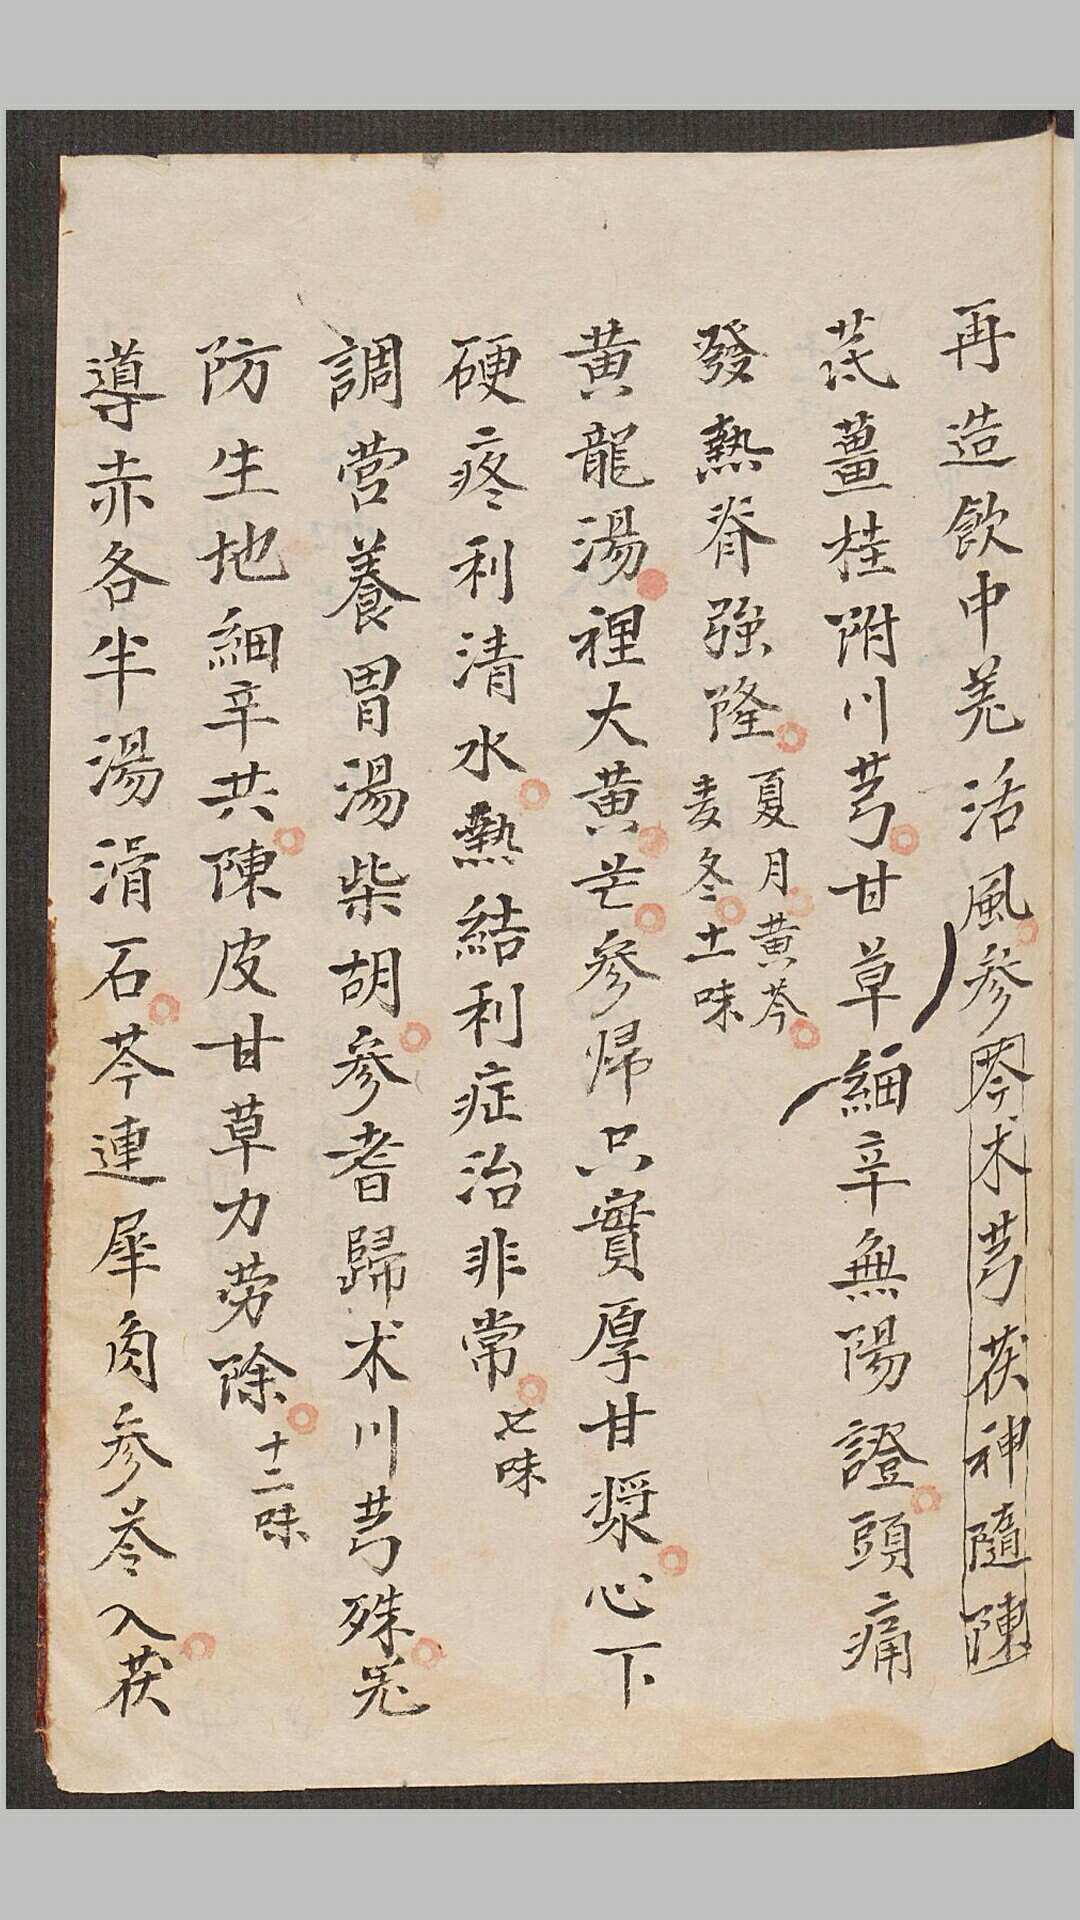 再造飲中羗活風參芩术芎茯神隨陳
芪薑桂附川芎甘草細辛無陽證頭痛
發熱脊强隆夏月黄芩麦冬十一味
黄龍湯裡大黄芒參帰只實厚甘漿心下
硬疼利清水熱結利症治非常七味
調营養胃湯柴胡參耆歸术川芎殊羗
防生地細辛共陳皮甘草力劳除十二味
導赤各半湯滑石芩連犀角參苓入茯